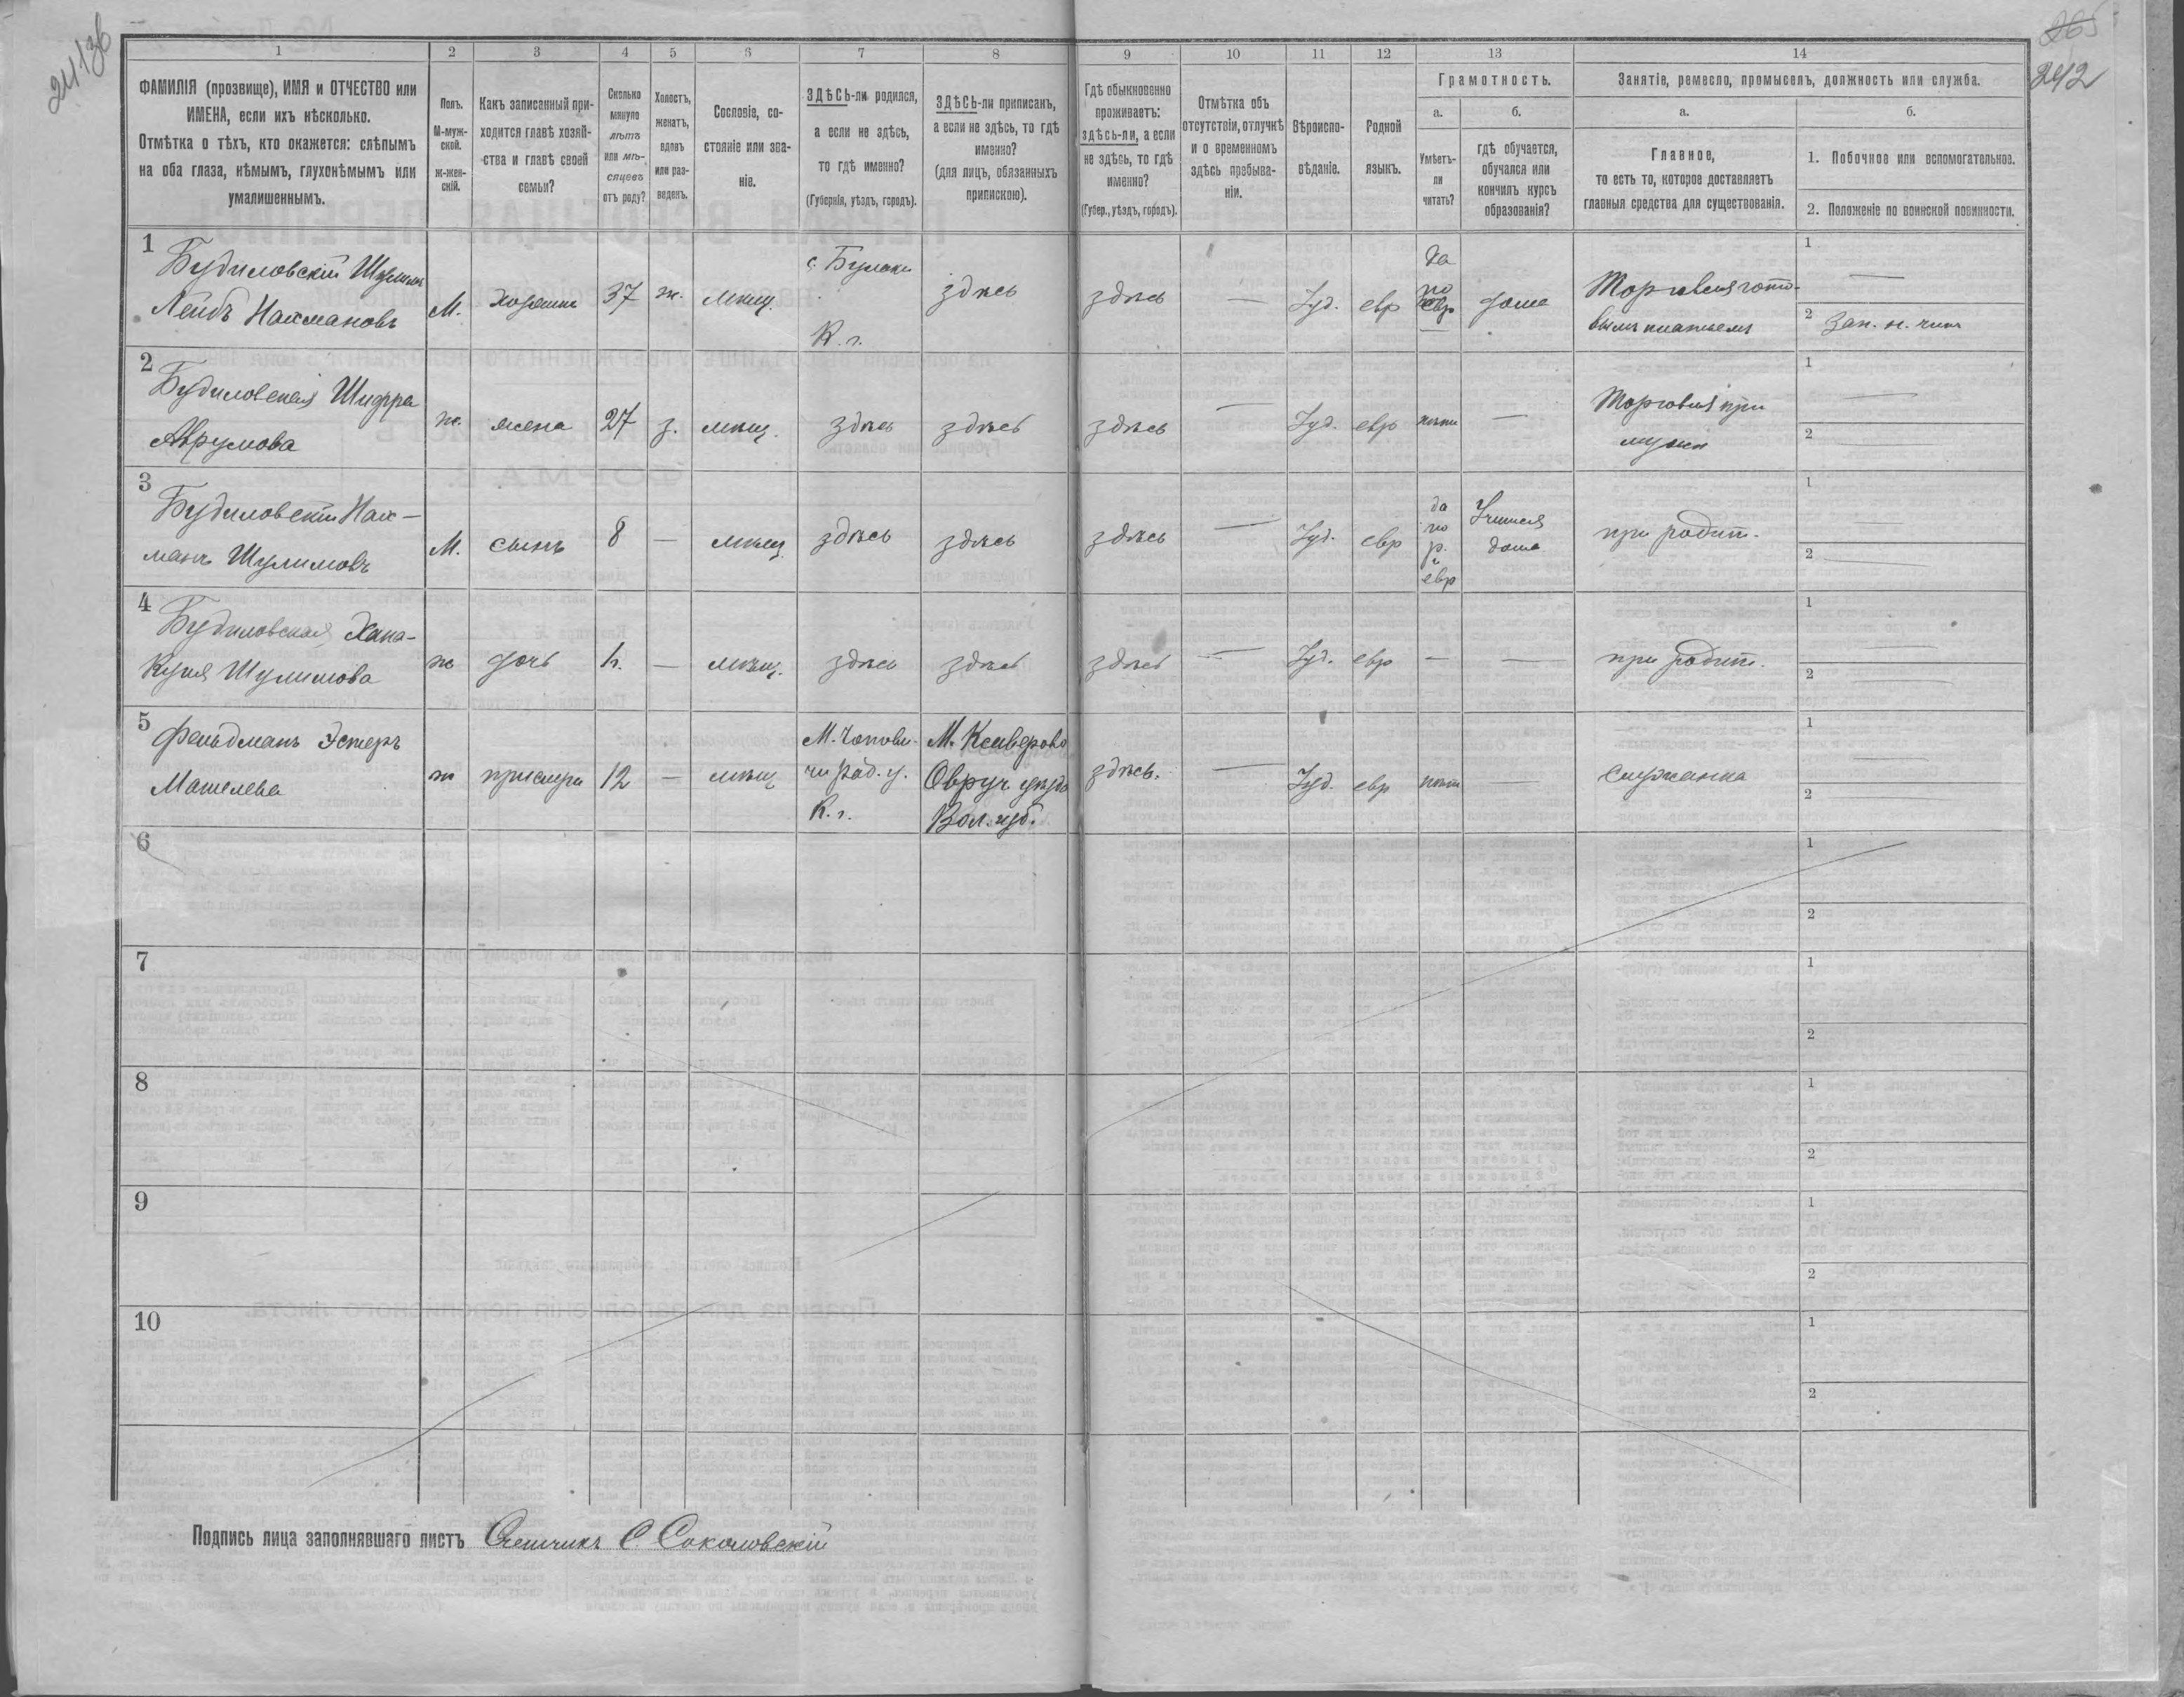 24136
265
242
1 2 3 4 5 6 7 8 9 10 11 12 13 14
ФАМИЛІЯ (прозвище), ИМЯ и ОТЧЕСТВО или
ИМЕНА, если ихъ нѣсколько.
Отмѣтка о тѣхъ, кто окажется: слѣпымъ
на оба глаза, нѣмымъ, глухонѣмымъ или
умалишеннымъ.
Полъ.
М-муж-
ской.
ж-жен-
скій.
Какъ записанный при-
ходится главѣ хозяй-
ства и главѣ своей
семьи?
Сколько
минуло
лѣтъ
или мѣ-
сяцевъ
отъ роду?
Холостъ,
женатъ,
вдовъ
или раз-
веденъ.
Сословіе, со-
стояніе или зва-
ніе.
ЗДѢСЬ-ли родился,
а если не здѣсь,
то гдѣ именно?
(Губернія, уѣздъ, городъ).
ЗДѢСЬ-ли приписанъ,
а если не здѣсь, то гдѣ
именно?
(для лицъ, обязанныхъ
припискою).
Гдѣ обыкновенно
проживаетъ:
здѣсь-ли, а если
не здѣсь, то гдѣ
именно?
(Губер., уѣздъ, городъ).
Отмѣтка объ
отсутствіи, отлучкѣ
и о временномъ
здѣсь пребыва-
ніи.
Вѣроиспо-
вѣданіе.
Родной
языкъ.
Грамотность.
а.
Умѣетъ-
ли
читать?
б.
гдѣ обучается,
обучался или
кончилъ курсъ
образованія?
Занятіе, ремесло, промыселъ, должность или служба.
а.
Главное,
то есть то, которое доставляетъ
главныя средства для существованія.
б.
1. Побочное или вспомогательное.
2. Положеніе по воинской повинности.
1
Будиловскій Шулимъ
Лейбъ Нахмановъ
М.
хозяинъ
37
ж.
мѣщ.
К. г.
здѣсь
здѣсь
—
Іуд.
евр
да
по
евр
дома
Торговля гото-
вымъ платьемъ
1 —
2 Зап. н. чинъ
2
Будиловская Шифра
Аврумова
ж.
жена
27
з.
мѣщ.
здѣсь
здѣсь
здѣсь
—
Іуд.
евр
нѣтъ
—
Торговля при
мужѣ
1 —
2 —
3
Будиловскій Нах-
манъ Шулимовъ
М.
сынъ
8
—
мѣщ
здѣсь
здѣсь
здѣсь
—
Іуд.
евр
да
по
р.
и
евр
Учится
дома
при родит.
1 —
2 —
4
Будиловская Хана-
Шулимова
ж
дочь
—
мѣщ.
здѣсь
здѣсь
здѣсь
—
Іуд.
евр
—
—
при родит.
1 —
2 —
5
Фельдманъ Эстеръ
ж
прислуга
12
—
мѣщ
М. Чопови-
чи Рад. у.
К. г.
М.
Овруч уѣзда
Вол. губ.
здѣсь.
—
Іуд.
евр
нѣтъ
—
Служанка
1 —
2 —
6
1
2
7
1
2
8
1
2
9
1
2
10
1
2
Подпись лица заполнявшаго листъ Счетчикъ С. Соколовскій